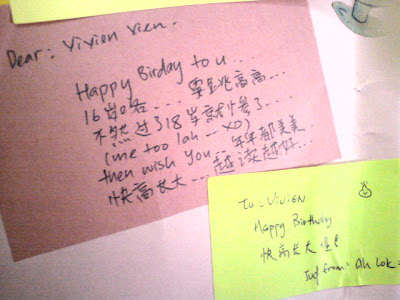 Dear: Vivien Vien.
Happy Birday to u...
16岁咯... 要跳高高...
不然过了18岁就惨了...
(me too lah -- XD)
then wish you... 年年都美美
快高长大... 越读越好...
To - Vivien
Happy Birthday
快高长大
from: Ah Lok